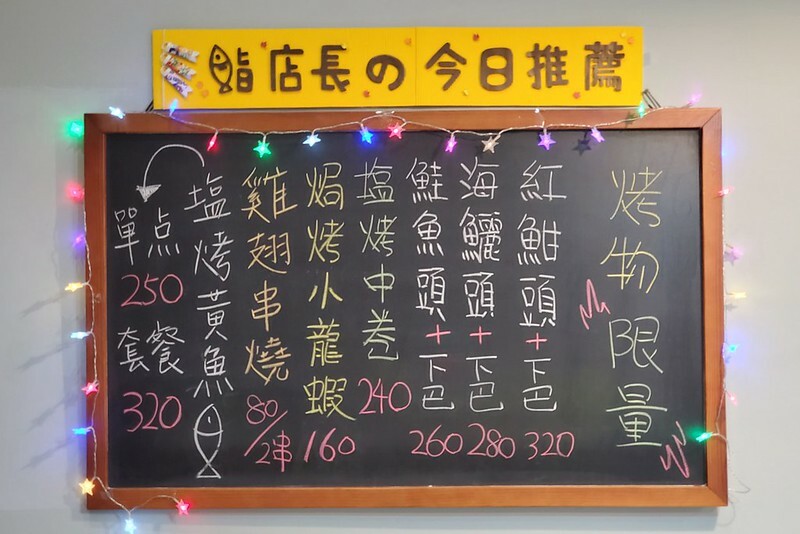 鮨店長の今日推薦
烤物限量
紅魽頭+下巴
320
海鱺頭+下巴
280
鮭魚頭+下巴
260
塩烤中卷
240
焗烤小龍蝦
160
雞翅串燒
80/2串
塩烤黃魚
單点
250
套餐
320